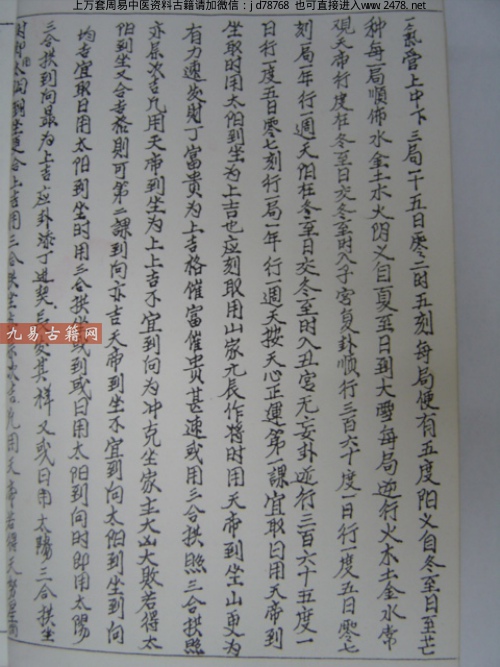 上万套周易中医资料古籍请加微信：jd78768 也可直接进入www.2478.net
三气管上中下三局一十五日零二时五刻每局便有五度阳乂自冬至日至芒
种每一局顺佈水金土木火阴乂自夏至日到大雪每局逆行火木土金水常
观天帝行度在冬至日交冬至时入子宫复卦顺行三百六十度一日行一度五日零七
刻局一年行一週天阳在冬至日交冬至时入丑宫无妄卦逆行三百六十五度一
日行一度五日零七刻行一局一年行一週天按天心正運第一課宜取日用天帝到
坐取时用太阳到坐为上吉也应刻取用山家元辰作将时用天帝到坐山更为
有力速发财丁富贵为上吉格催富催贵甚速或用三合拱照三合拱照
亦屬次吉凡用天帝到坐为上上吉不宜到向为冲克坐家主大凶大败若得太
阳到坐又合吉格则可第二課到向亦吉天帝到坐不宜到向太阳到坐到向
均吉宜取日用太阳到坐时用三合拱 或到或日用太阳到向时即用太陽
三合拱到向最为上吉应卦添丁進契 其样又或日用太陽三合拱坐
时即太阳到坐更合上吉用三合拱坐 吉凡用天帝若得天
九易古籍网